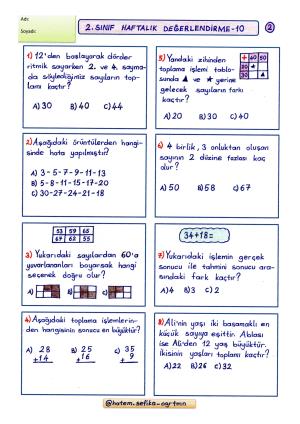 Adı:
Soyadı:
2.SINIF HAFTALIK DEĞERLENDİRME-10
2
1) 12'den başlayarak dörder
ritmik sayarken 2. ve 4. sayma-
da söylediğimiz sayıların top-
lamı kaçtır?
A) 30 B) 40 C) 44
2) Aşağıdaki örüntülerden hangi-
sinde hata yapılmıştır?
A) 3-5-7-9-11-13
B) 5-8-11-15-17-20
C) 30-27-24-21-18
53 59 65
67 62 55
3) Yukarıdaki sayılardan 60'a
yuvarlananları boyarsak hangi
seçenek doğru olur?
A) B) C)
4) Aşağıdaki toplama işlemlerin-
den hangisinin sonucu en büyüktür?
A) 28 B) 25 C) 35
+14 +16 +9
5) Yandaki zihinden
toplama işlemi tablo-
sunda ▲ ve ★ yerine
gelecek sayıların farkı
kaçtır?
+ 40 50
20
30
A) 20 B) 30 C) 40
6) 4 birlik, 3 onluktan oluşan
sayının 2 düzine fazlası kaç
olur?
A) 50 B) 58 C) 67
34+18=
7) Yukarıdaki işlemin gerçek
sonucu ile tahmini sonucu ara-
sındaki fark kaçtır?
A) 4 B) 3 C) 2
8) Ali'nin yaşı iki basamaklı en
küçük sayıya eşittir. Ablası
ise Ali'den 12 yaş büyüktür.
İkisinin yaşları toplamı kaçtır?
A) 22 B) 26 C) 32
@hatem.sefika_ogrtmn